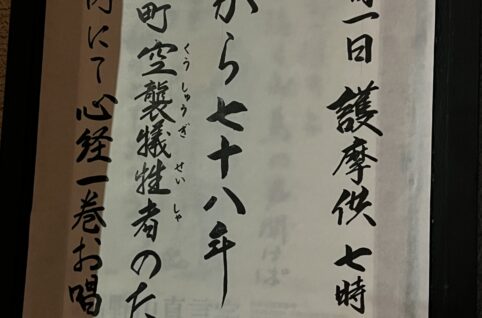 一日 護摩供 七時
から七十八年
くうしゅうぎせいしゃ
町空襲犠牲者のた
にて心経一巻お唱